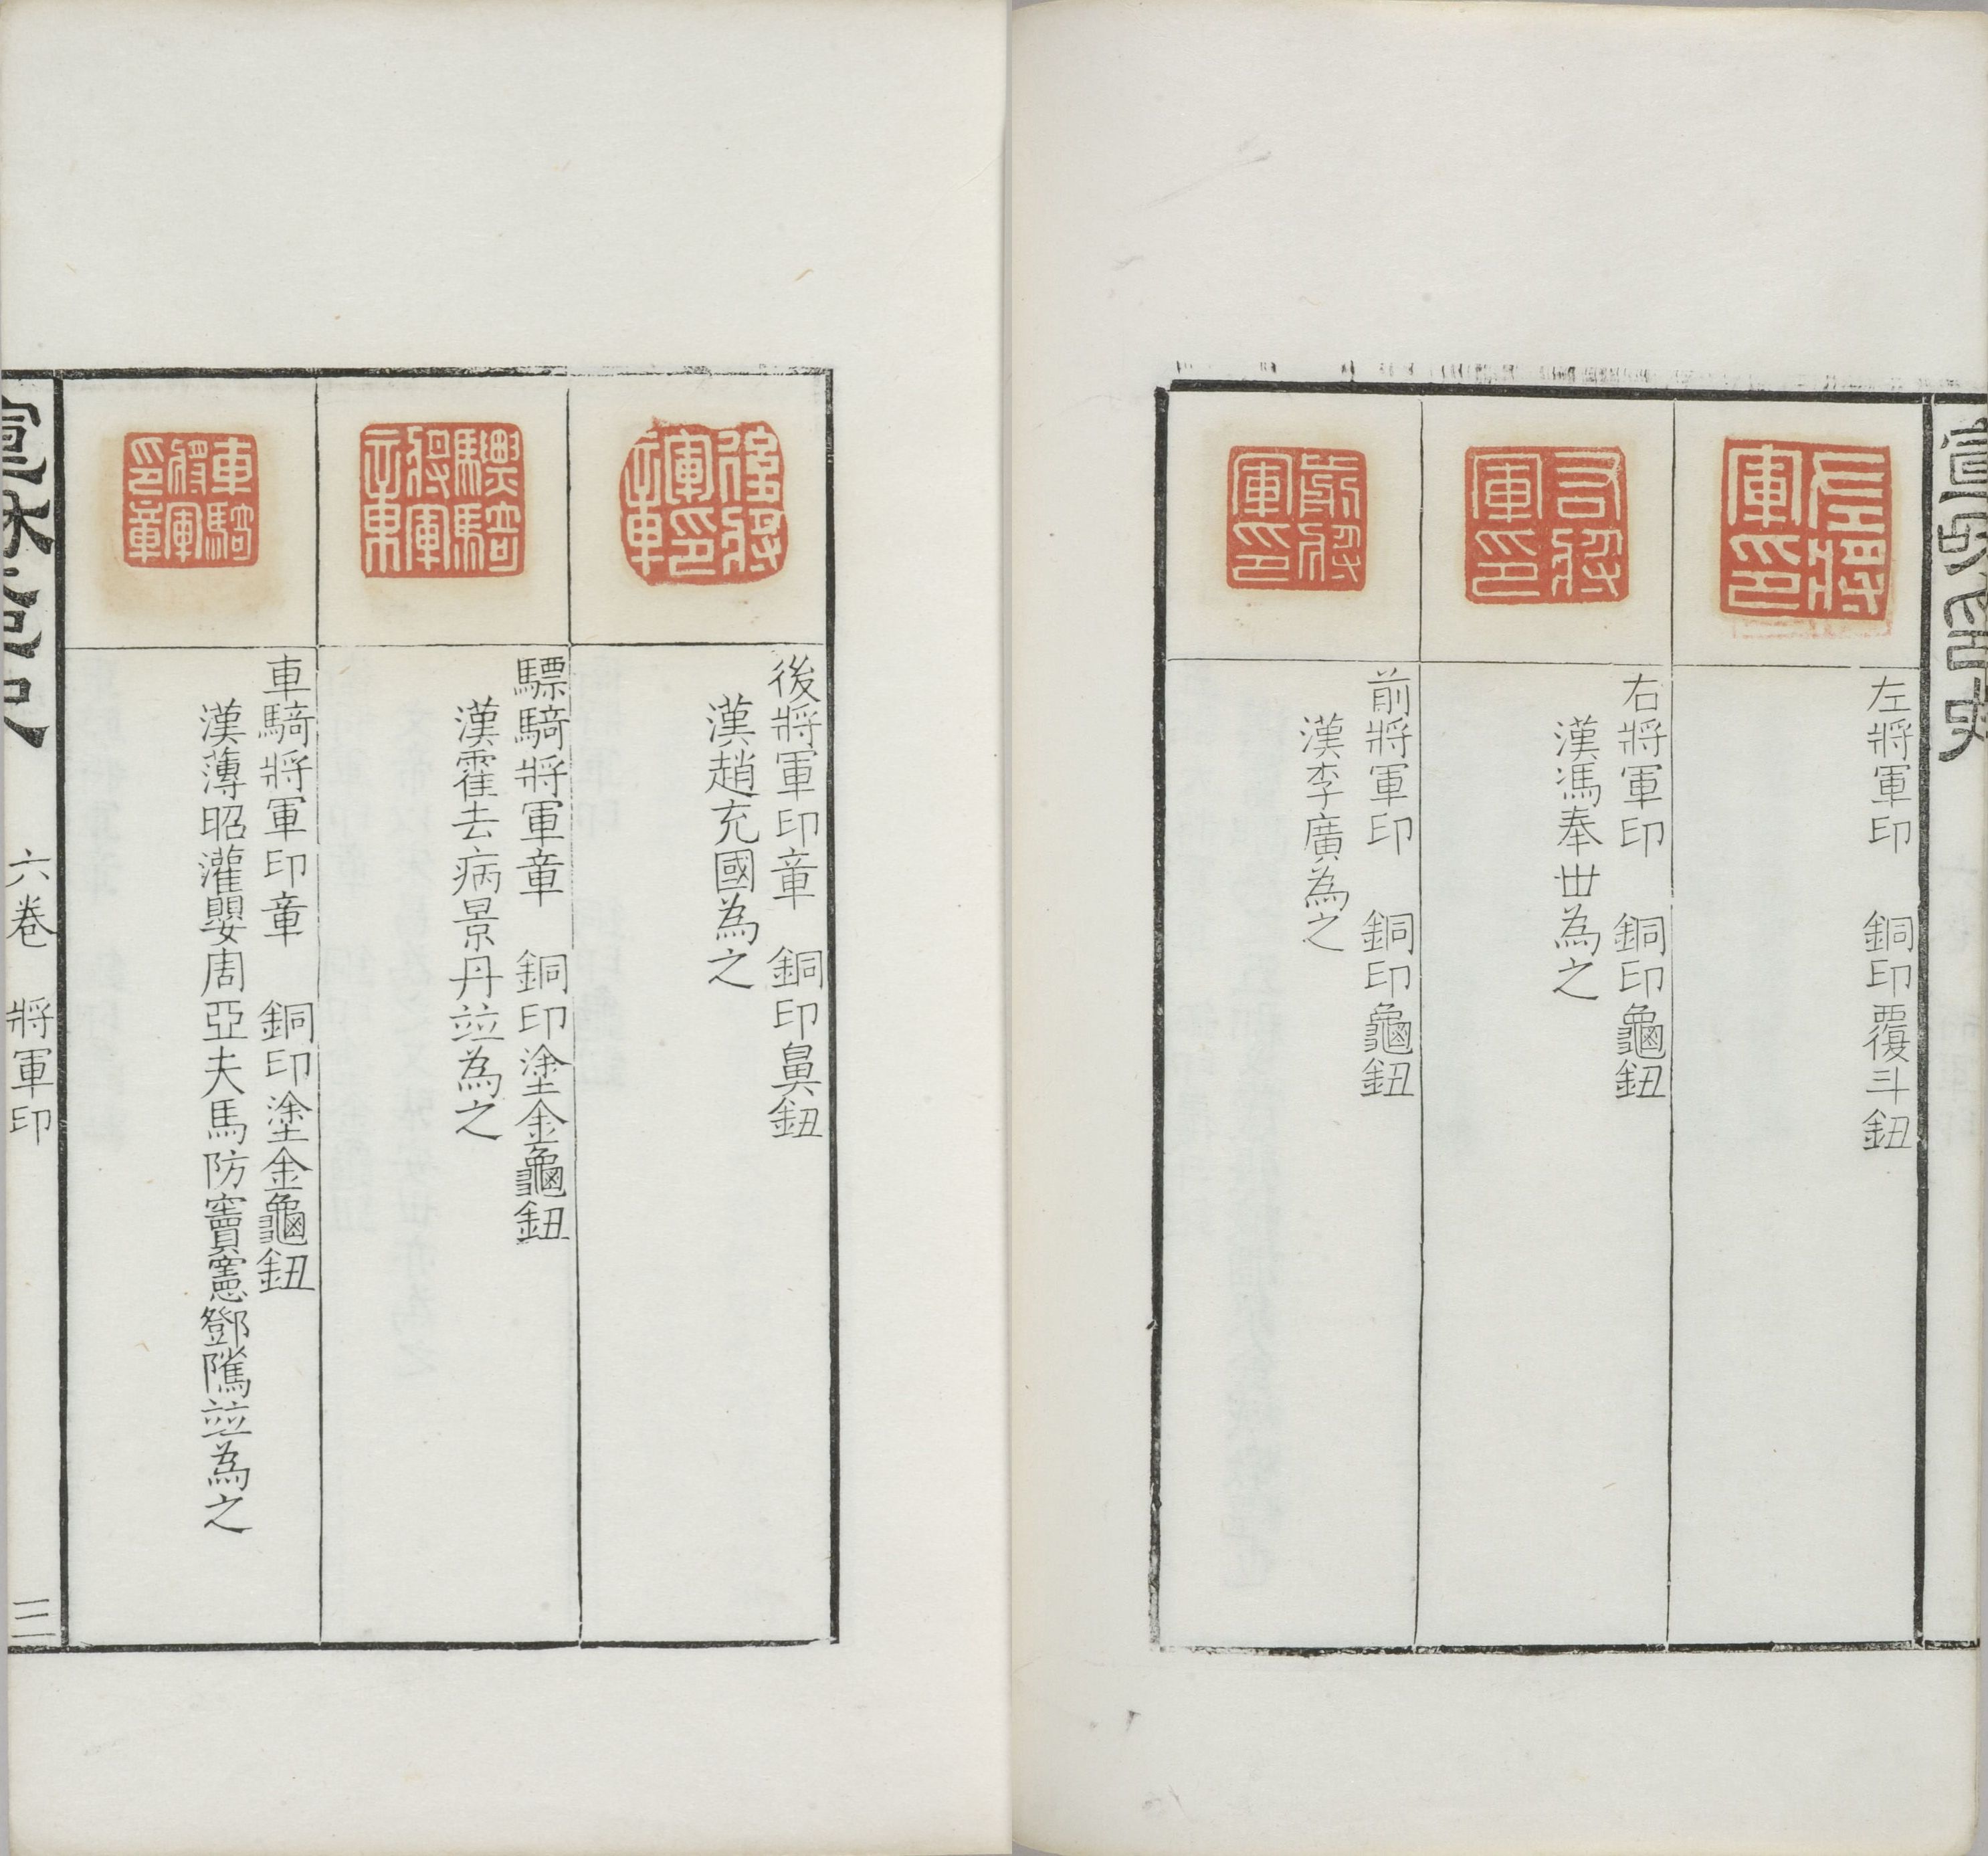 左將軍印　銅印覆斗鈕
右將軍印　銅印龜鈕
漢馮奉世為之
前將軍印　銅印龜鈕
漢李廣為之
後將軍印章　銅印鼻鈕
漢趙充國為之
驃騎將軍章　銅印塗金龜鈕
漢霍去病景丹竝為之
車騎將軍印章　銅印塗金龜鈕
漢薄昭灌嬰周亞夫馬防竇憲鄧隲竝為之
六卷　將軍印
三
左將軍印
右將軍印
前將軍印
後將軍印章
車騎將軍印章